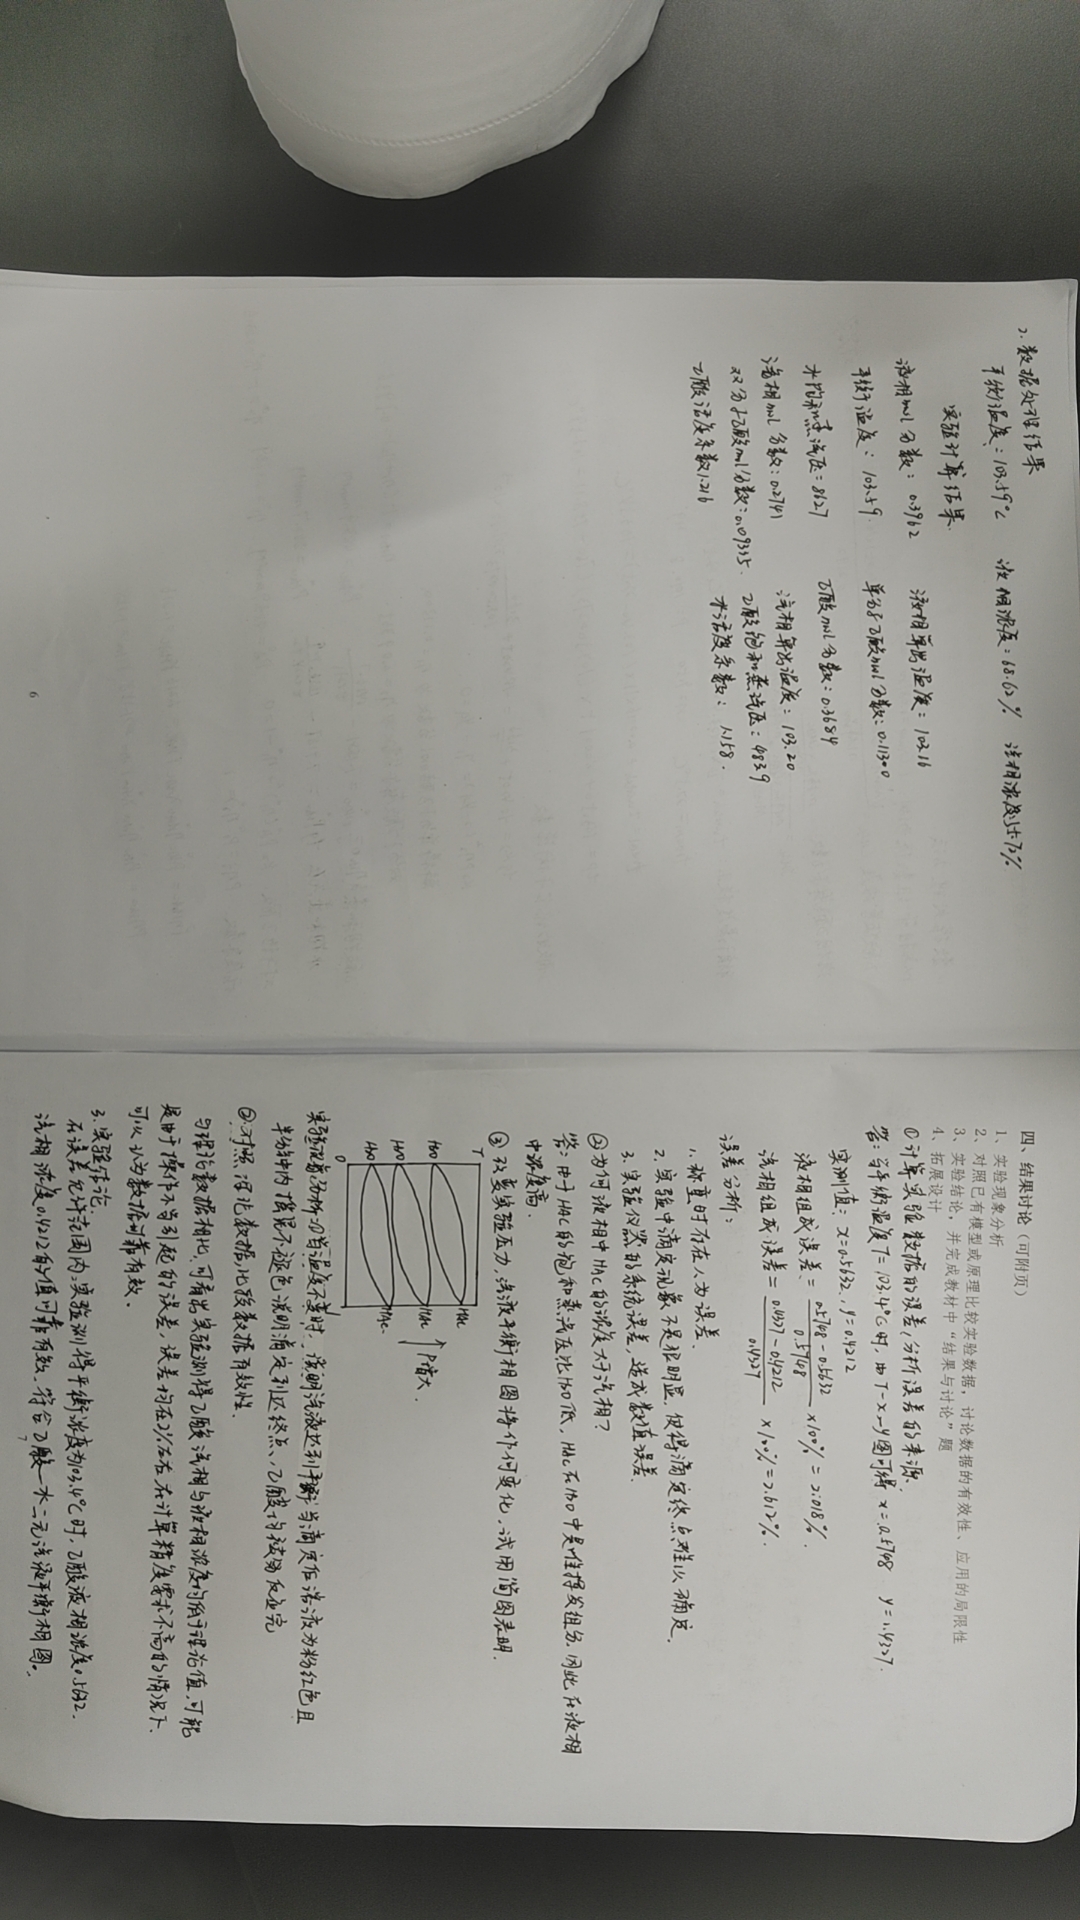 2. 数据处理结果
平衡温度：103.59℃ 液相浓度：68.62% 汽相浓度55.72%
实验计算结果
液相mol分数：0.3962 液相算出温度：103.16
平衡温度：103.59 单分子乙酸mol分数：0.1130
水饱和蒸汽压=8627 乙酸mol分数：0.3684
汽相mol分数：0.2741 汽相算出温度=103.20
双分子乙酸mol分数：0.09335 乙酸饱和蒸汽压：4839
乙酸活度系数1.216 水活度系数：1.158
6
四、结果讨论（可附页）
1、实验现象分析
2、对照已有模型或原理比较实验数据，讨论数据的有效性、应用的局限性
3、实验结论，并完成教材中“结果与讨论”题
4、拓展设计
①计算实验数据的误差，分析误差的来源.
答：当平衡温度T=103.4℃时，由T-x-y图可得 x=0.5748 y=1.4327.
实测值：x=0.5632，y=0.4212
液相组成误差=0.5748-0.5632/0.5748×100%=2.018%.
汽相组成误差=0.4327-0.4212/0.4327×100%=2.612%.
误差分析：
1. 称重时存在人为误差.
2. 实验中滴定现象不是很明显，使得滴定终点难以确定.
3. 实验仪器的系统误差，造成数值误差.
②为何液相中HAc的浓度大于汽相？
答：由于HAc的饱和蒸汽压比H₂O低，HAc在H₂O中是难挥发组分，因此在液相
中浓度高.
③改变实验压力，汽液平衡相图将作何变化，试用简图表明.
T
H₂O HAc
H₂O HAc ↑P增大.
H₂O HAc
0
实验现象分析：①当温度不变时，说明汽液达到平衡；当滴定后溶液为粉红色且
半分钟内摇晃不褪色说明滴定到达终点，乙酸均被反应完
②对照理论数据，比较数据有效性.
与理论数据相比，可看出实验测得乙酸汽相与液相浓度均低于理论值，可能
是由于操作不当引起的误差，误差均在2%左右，在计算精度要求不高的情况下，
可以认为数据可靠有效.
3. 实验结论.
在误差允许范围内，实验测得平衡温度为103.4℃时，乙酸液相浓度0.5632.
汽相浓度0.4212的值可靠有效. 符合乙酸-水二元汽液平衡相图.
7